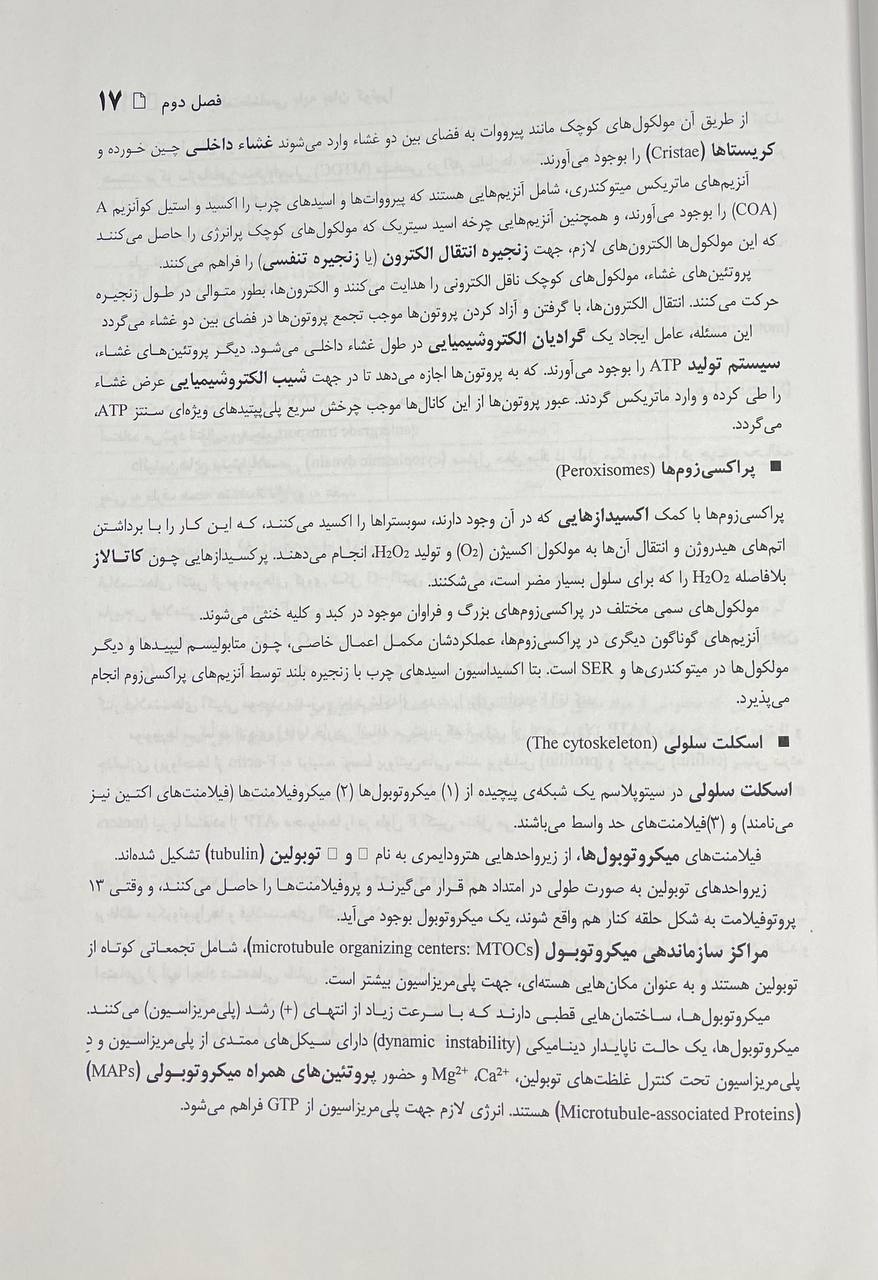 فصل دوم 🗋 ۱۷
از طریق آن مولکول‌های کوچک مانند پیرووات به فضای بین دو غشاء وارد می‌شوند غشاء داخلی چین خورده و
کریستاها (Cristae) را بوجود می‌آورند.
آنزیم‌های ماتریکس میتوکندری، شامل آنزیم‌هایی هستند که پیرووات‌ها و اسیدهای چرب را اکسید و استیل کوآنزیم A
(COA) را بوجود می‌آورند، و همچنین آنزیم‌هایی چرخه اسید سیتریک که مولکول‌های کوچک پرانرژی را حاصل می‌کنند
که این مولکول‌ها الکترون‌های لازم، جهت زنجیره انتقال الکترون (یا زنجیره تنفسی) را فراهم می‌کنند.
پروتئین‌های غشاء، مولکول‌های کوچک ناقل الکترونی را هدایت می‌کنند و الکترون‌ها، بطور متوالی در طول زنجیره
حرکت می‌کنند. انتقال الکترون‌ها، با گرفتن و آزاد کردن پروتون‌ها موجب تجمع پروتون‌ها در فضای بین دو غشاء می‌گردد
این مسئله، عامل ایجاد یک گرادیان الکتروشیمیایی در طول غشاء داخلی می‌شود. دیگر پروتئین‌های غشاء،
سیستم تولید ATP را بوجود می‌آورند. که به پروتون‌ها اجازه می‌دهد تا در جهت شیب الکتروشیمیایی عرض غشاء
را طی کرده و وارد ماتریکس گردند. عبور پروتون‌ها از این کانال‌ها موجب چرخش سریع پلی‌پپتیدهای ویژه‌ای سنتز ATP،
می‌گردد.
■ پراکسی‌زوم‌ها (Peroxisomes)
پراکسی‌زوم‌ها با کمک اکسیدازهایی که در آن وجود دارند، سوبستراها را اکسید می‌کنند، که این کار را با برداشتن
اتم‌های هیدروژن و انتقال آن‌ها به مولکول اکسیژن (O₂) و تولید H₂O₂، انجام می‌دهند. پرکسیدازهایی چون کاتالاز
بلافاصله H₂O₂ را که برای سلول بسیار مضر است، می‌شکنند.
مولکول‌های سمی مختلف در پراکسی‌زوم‌های بزرگ و فراوان موجود در کبد و کلیه خنثی می‌شوند.
آنزیم‌های گوناگون دیگری در پراکسی‌زوم‌ها، عملکردشان مکمل اعمال خاصی، چون متابولیسم لیپیدها و دیگر
مولکول‌ها در میتوکندری‌ها و SER است. بتا اکسیداسیون اسیدهای چرب با زنجیره بلند توسط آنزیم‌های پراکسی‌زوم انجام
می‌پذیرد.
■ اسکلت سلولی (The cytoskeleton)
اسکلت سلولی در سیتوپلاسم یک شبکه‌ی پیچیده از (۱) میکروتوبول‌ها (۲) میکروفیلامنت‌ها (فیلامنت‌های اکتین نیز
می‌نامند) و (۳)فیلامنت‌های حد واسط می‌باشند.
فیلامنت‌های میکروتوبول‌ها، از زیرواحدهایی هترودایمری به نام □ و □ توبولین (tubulin) تشکیل شده‌اند.
زیرواحدهای توبولین به صورت طولی در امتداد هم قرار می‌گیرند و پروفیلامنت‌ها را حاصل می‌کنند، و وقتی ۱۳
پروتوفیلامت به شکل حلقه کنار هم واقع شوند، یک میکروتوبول بوجود می‌آید.
مراکز سازماندهی میکروتوبول (microtubule organizing centers: MTOCs)، شامل تجمعاتی کوتاه از
توبولین هستند و به عنوان مکان‌هایی هسته‌ای، جهت پلی‌مریزاسیون بیشتر است.
میکروتوبول‌ها، ساختمان‌هایی قطبی دارند که با سرعت زیاد از انتهای (+) رشد (پلی‌مریزاسیون) می‌کنند.
میکروتوبول‌ها، یک حالت ناپایدار دینامیکی (dynamic instability) دارای سیکل‌های ممتدی از پلی‌مریزاسیون و دِ
پلی‌مریزاسیون تحت کنترل غلظت‌های توبولین، Mg²⁺ ،Ca²⁺ و حضور پروتئین‌های همراه میکروتوبولی (MAPs)
(Microtubule-associated Proteins) هستند. انرژی لازم جهت پلی‌مریزاسیون از GTP فراهم می‌شود.